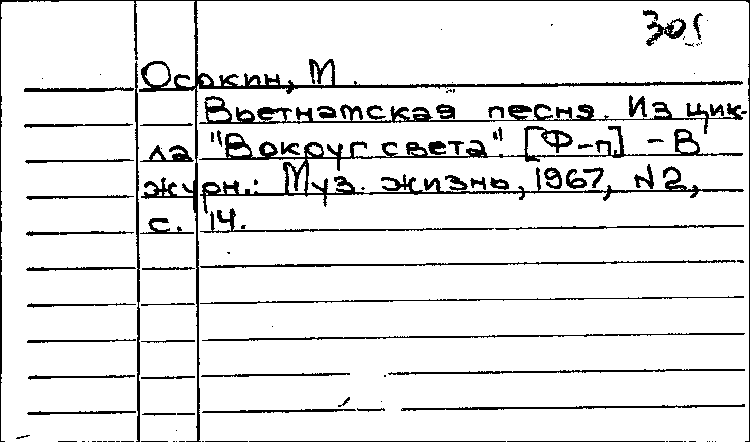 305
Осокин, М.
Вьетнамская песня. Из цик-
ла "Вокруг света". [Ф-п] - В
журн.: Муз. жизнь, 1967, N2,
с. 14.